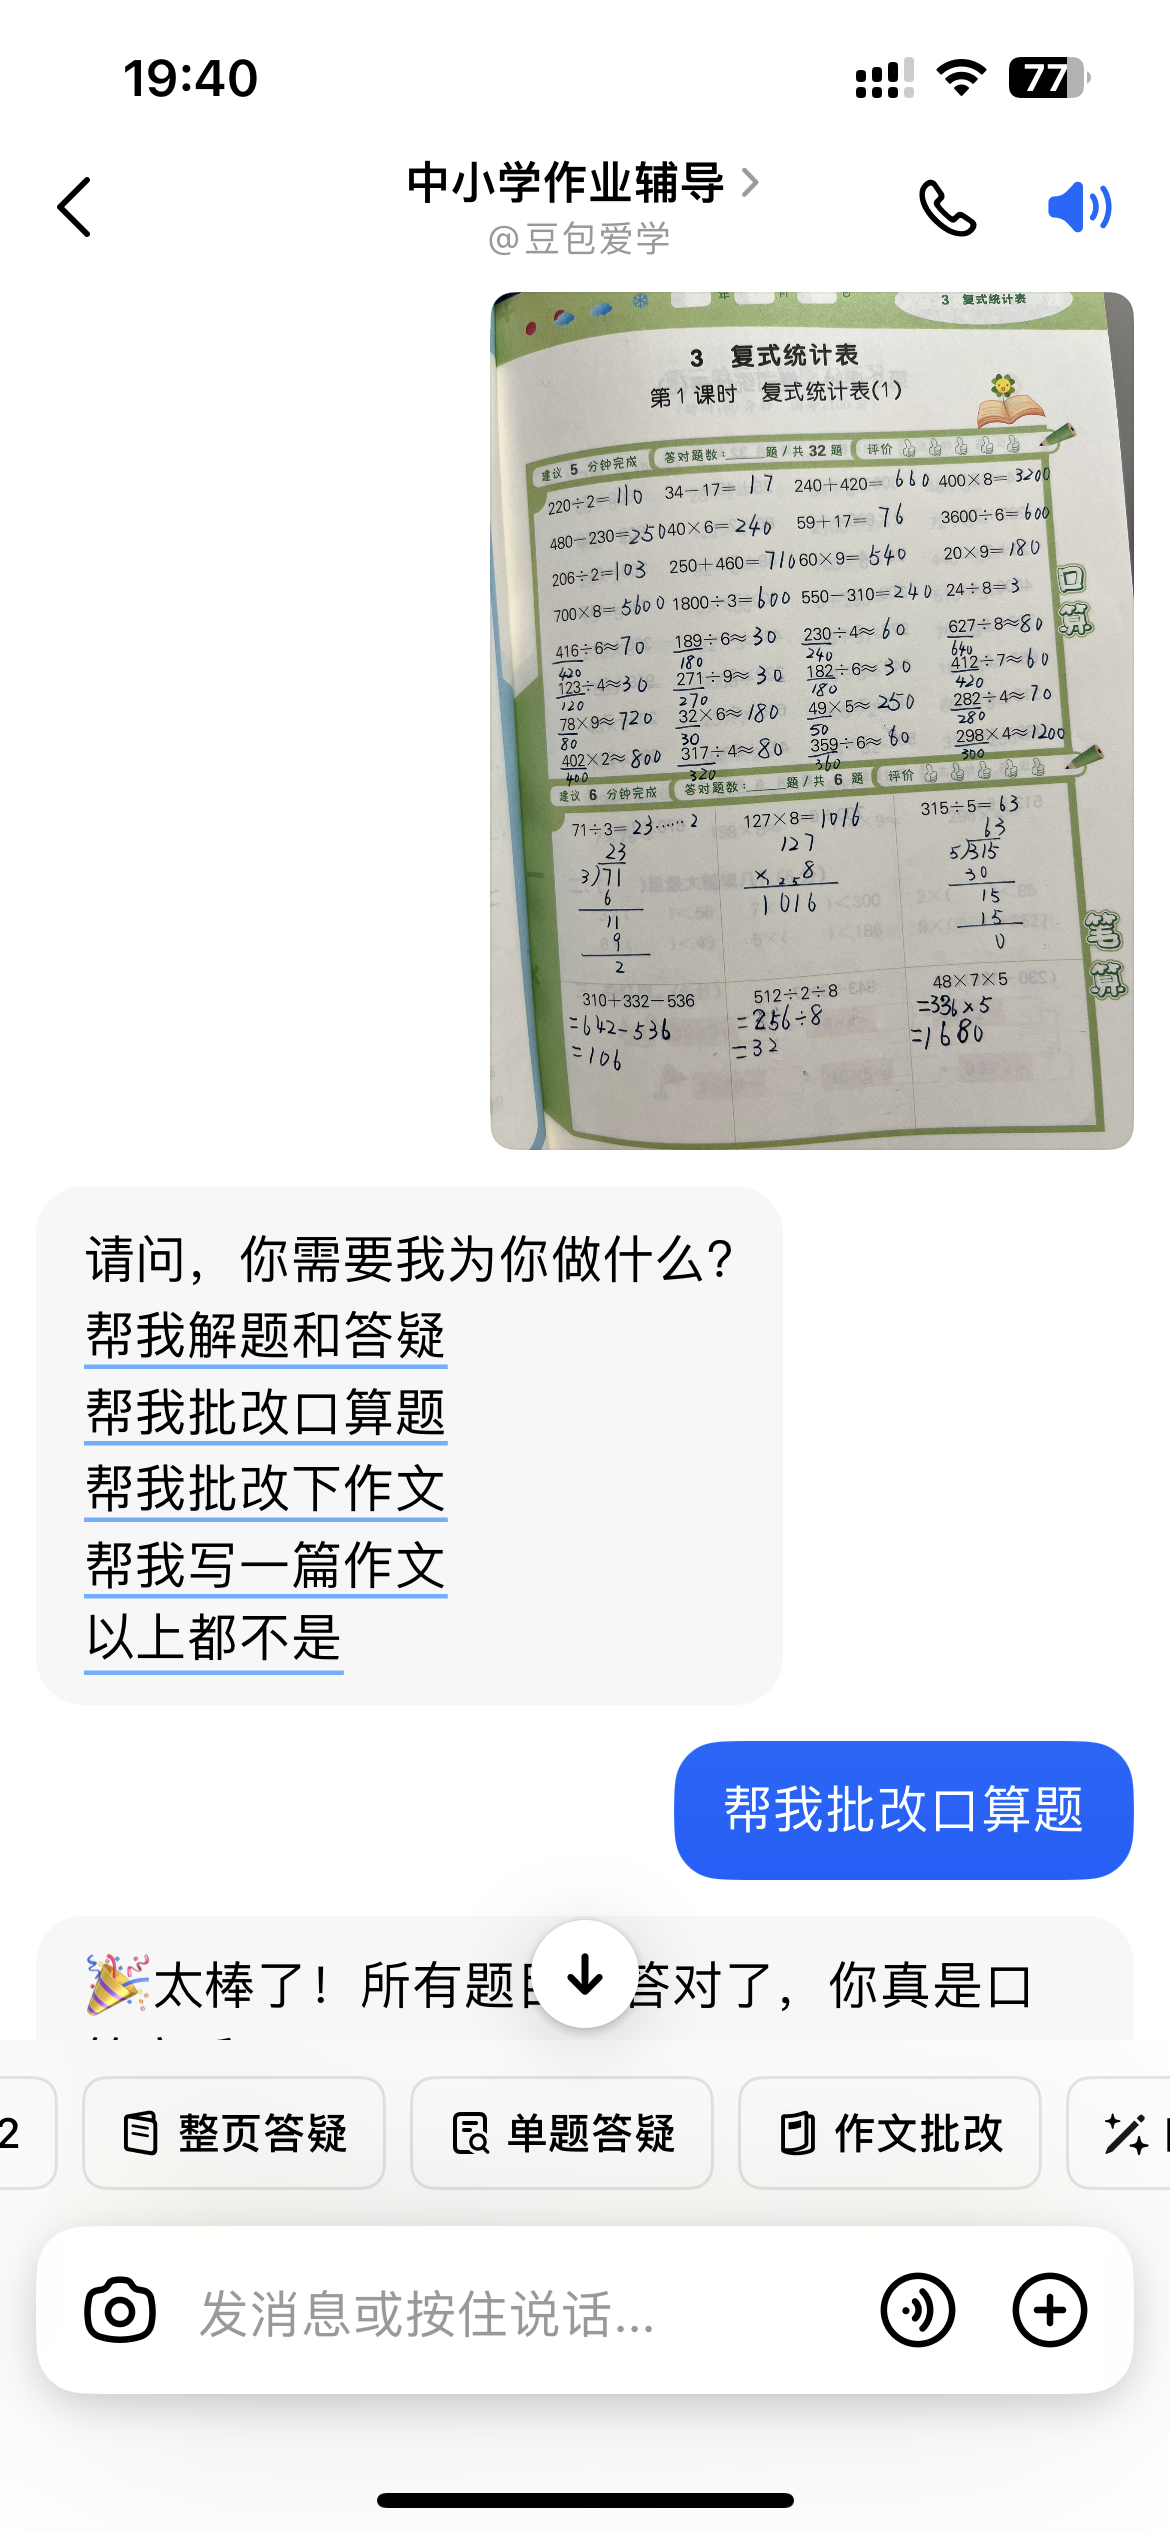 19:40
77
中小学作业辅导
@豆包爱学
3 复式统计表
3 复式统计表
第1课时 复式统计表(1)
建议 5 分钟完成 答对题数:____题/共 32 题 评价
220÷2=110 34-17=17 240+420=660 400×8=3200
480-230=250 40×6=240 59+17=76 3600÷6=600
206÷2=103 250+460=710 60×9=540 20×9=180
700×8=5600 1800÷3=600 550-310=240 24÷8=3
口算
416÷6≈70 189÷6≈30 230÷4≈60 627÷8≈80
420 180 240 640
123÷4≈30 271÷9≈30 182÷6≈30 412÷7≈60
120 270 180 420
78×9≈720 32×6≈180 49×5≈250 282÷4≈70
80 30 50 280
402×2≈800 317÷4≈80 359÷6≈60 298×4≈1200
400 320 360 300
建议 6 分钟完成 答对题数:____题/共 6 题 评价
71÷3=23……2 127×8=1016 315÷5=63
23 127 63
3)71 ×258 5)315
6 1016 30
11 15
9 15
2 0
笔算
310+332-536 512÷2÷8 48×7×5
=642-536 =256÷8 =336×5
=106 =32 =1680
请问，你需要我为你做什么?
帮我解题和答疑
帮我批改口算题
帮我批改下作文
帮我写一篇作文
以上都不是
帮我批改口算题
🎉太棒了！所有题目 答对了，你真是口
2 整页答疑 单题答疑 作文批改
发消息或按住说话...